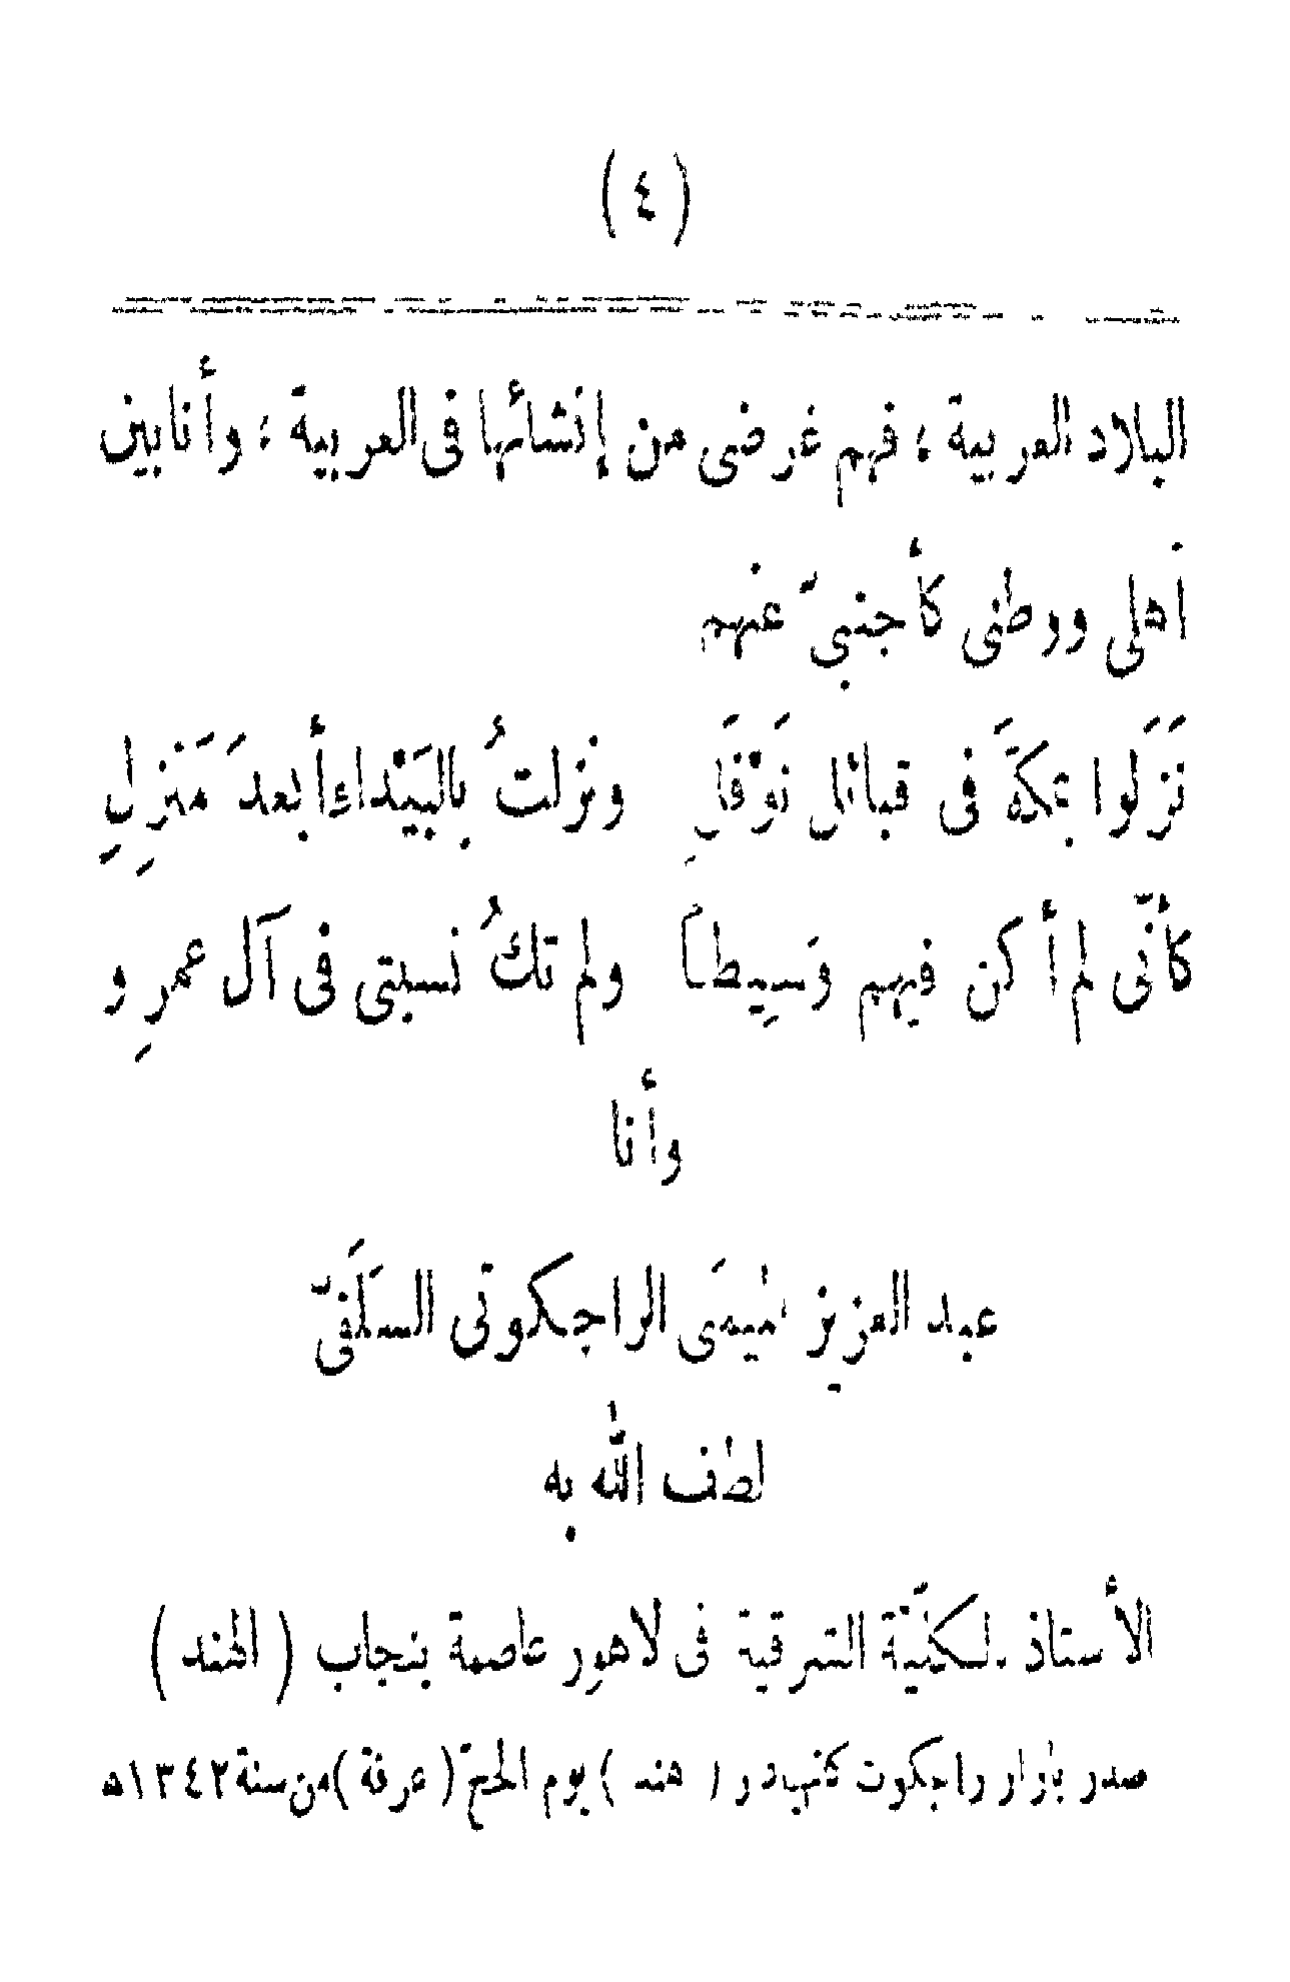 (٤)
البلاد العربية ؛ فهم غرضى من إنشائها فى العربية ؛ وأنا بين
أهلى ووطنى كأجنبىّ عنهم
نَزَلوا بمكةَّ فى قبائل نَوْفَلِ ونزلتُ بِالبَيْداء أبعدَ مَنزِلٍ
كأنّى لم أكن فيهم وَسيِطاً ولم تكُ نسبتى فى آل عمرِو
وأنا
عبد العزيز الميمَنى الراجكوتى السَلَفىّ
لطف الله به
الأستاذ بالكليّة الشرقية فى لاهور عاصمة بنجاب ( الهند )
صدر بازار راجكوت ( هند ) يوم الحجّ ( عرفة ) من سنة ١٣٤٢ه